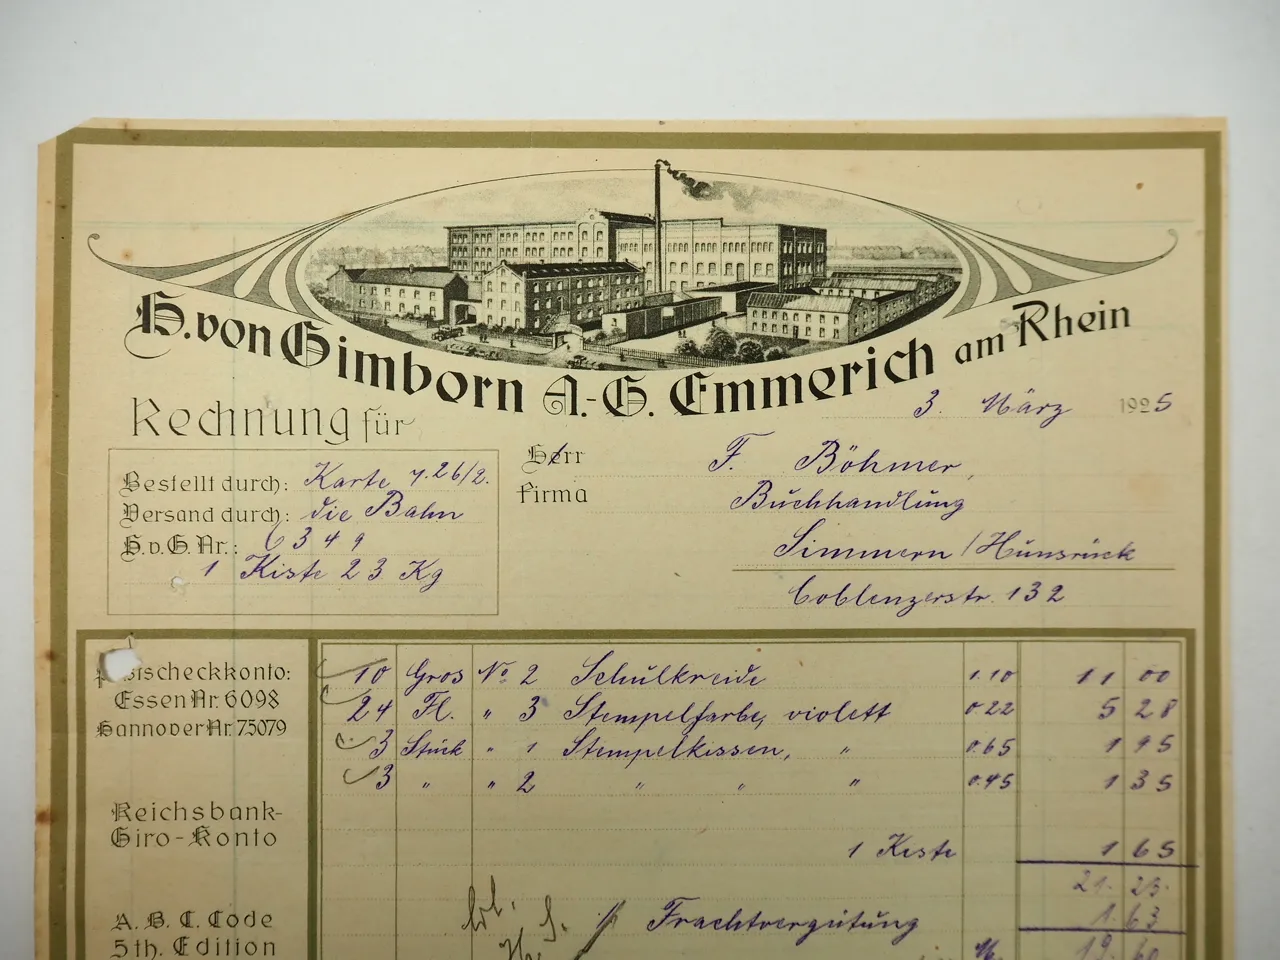 H. von Gimborn A.-G. Emmerich am Rhein
3. März 1925
Rechnung für
Herr F. Böhmer,
Firma Buchhandlung
Simmern / Hunsrück
Coblenzerstr. 132
Bestellt durch: Karte v. 26/2.
Versand durch: die Bahn
H.v.G. Nr.: 6349
1 Kiste 23 Kg
Postscheckkonto:
Essen Nr. 6098
Hannover Nr. 75079
Reichsbank-
Giro-Konto
A. B. C. Code
5th. Edition
10 Gros No 2 Schulkreide 1.10 11 00
24 Fl. " 3 Stempelfarbe, violett 0.22 5 28
3 Stück " 1 Stempelkissen, " 0.65 1 95
3 " " 2 " " " 0.45 1 35
1 Kiste 1 65
21. 23.
Frachtvergütung 1.63
M. 19.60